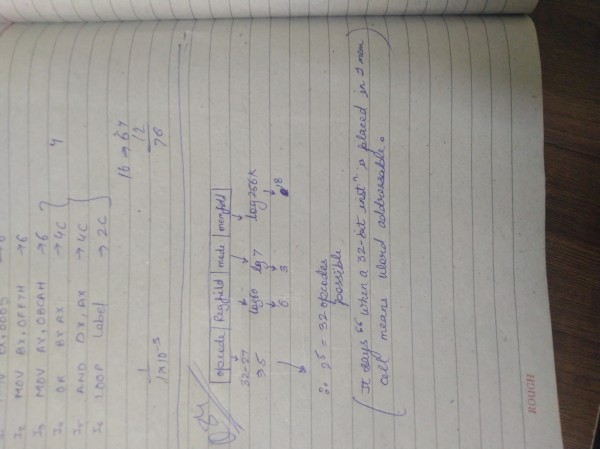 I₂ MOV BX, 0FFFH → 6
I₃ MOV AX, 0BCAH → 6
I₄ OR BX AX → 4C
I₅ AND DX, AX → 4C
I₆ LOOP Label → 2C
4
16 → 64
12
76
1
1×10⁻³
opcode | Regfield | mode | memfield
↓ ↓ ↓ ↓
32-27 log60 log 7 log 256K
↓ ↓ ↓
25 6 3 18
↓
∴ 2⁵ = 32 opcodes
possible
(It says "when a 32-bit instⁿ is placed in 1 mem
cell means word addressable.)
ROUGH